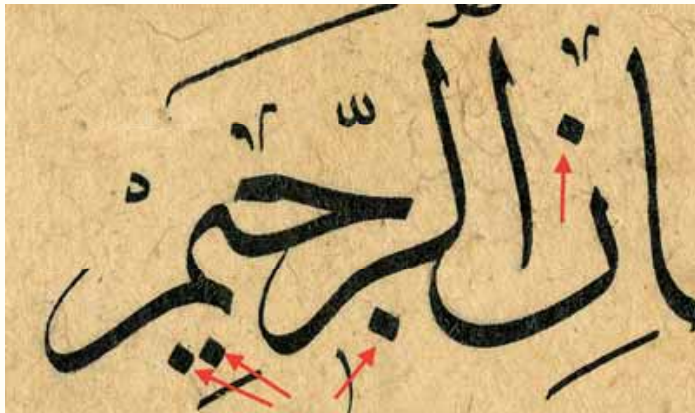 انِ الرَّجِيمْ